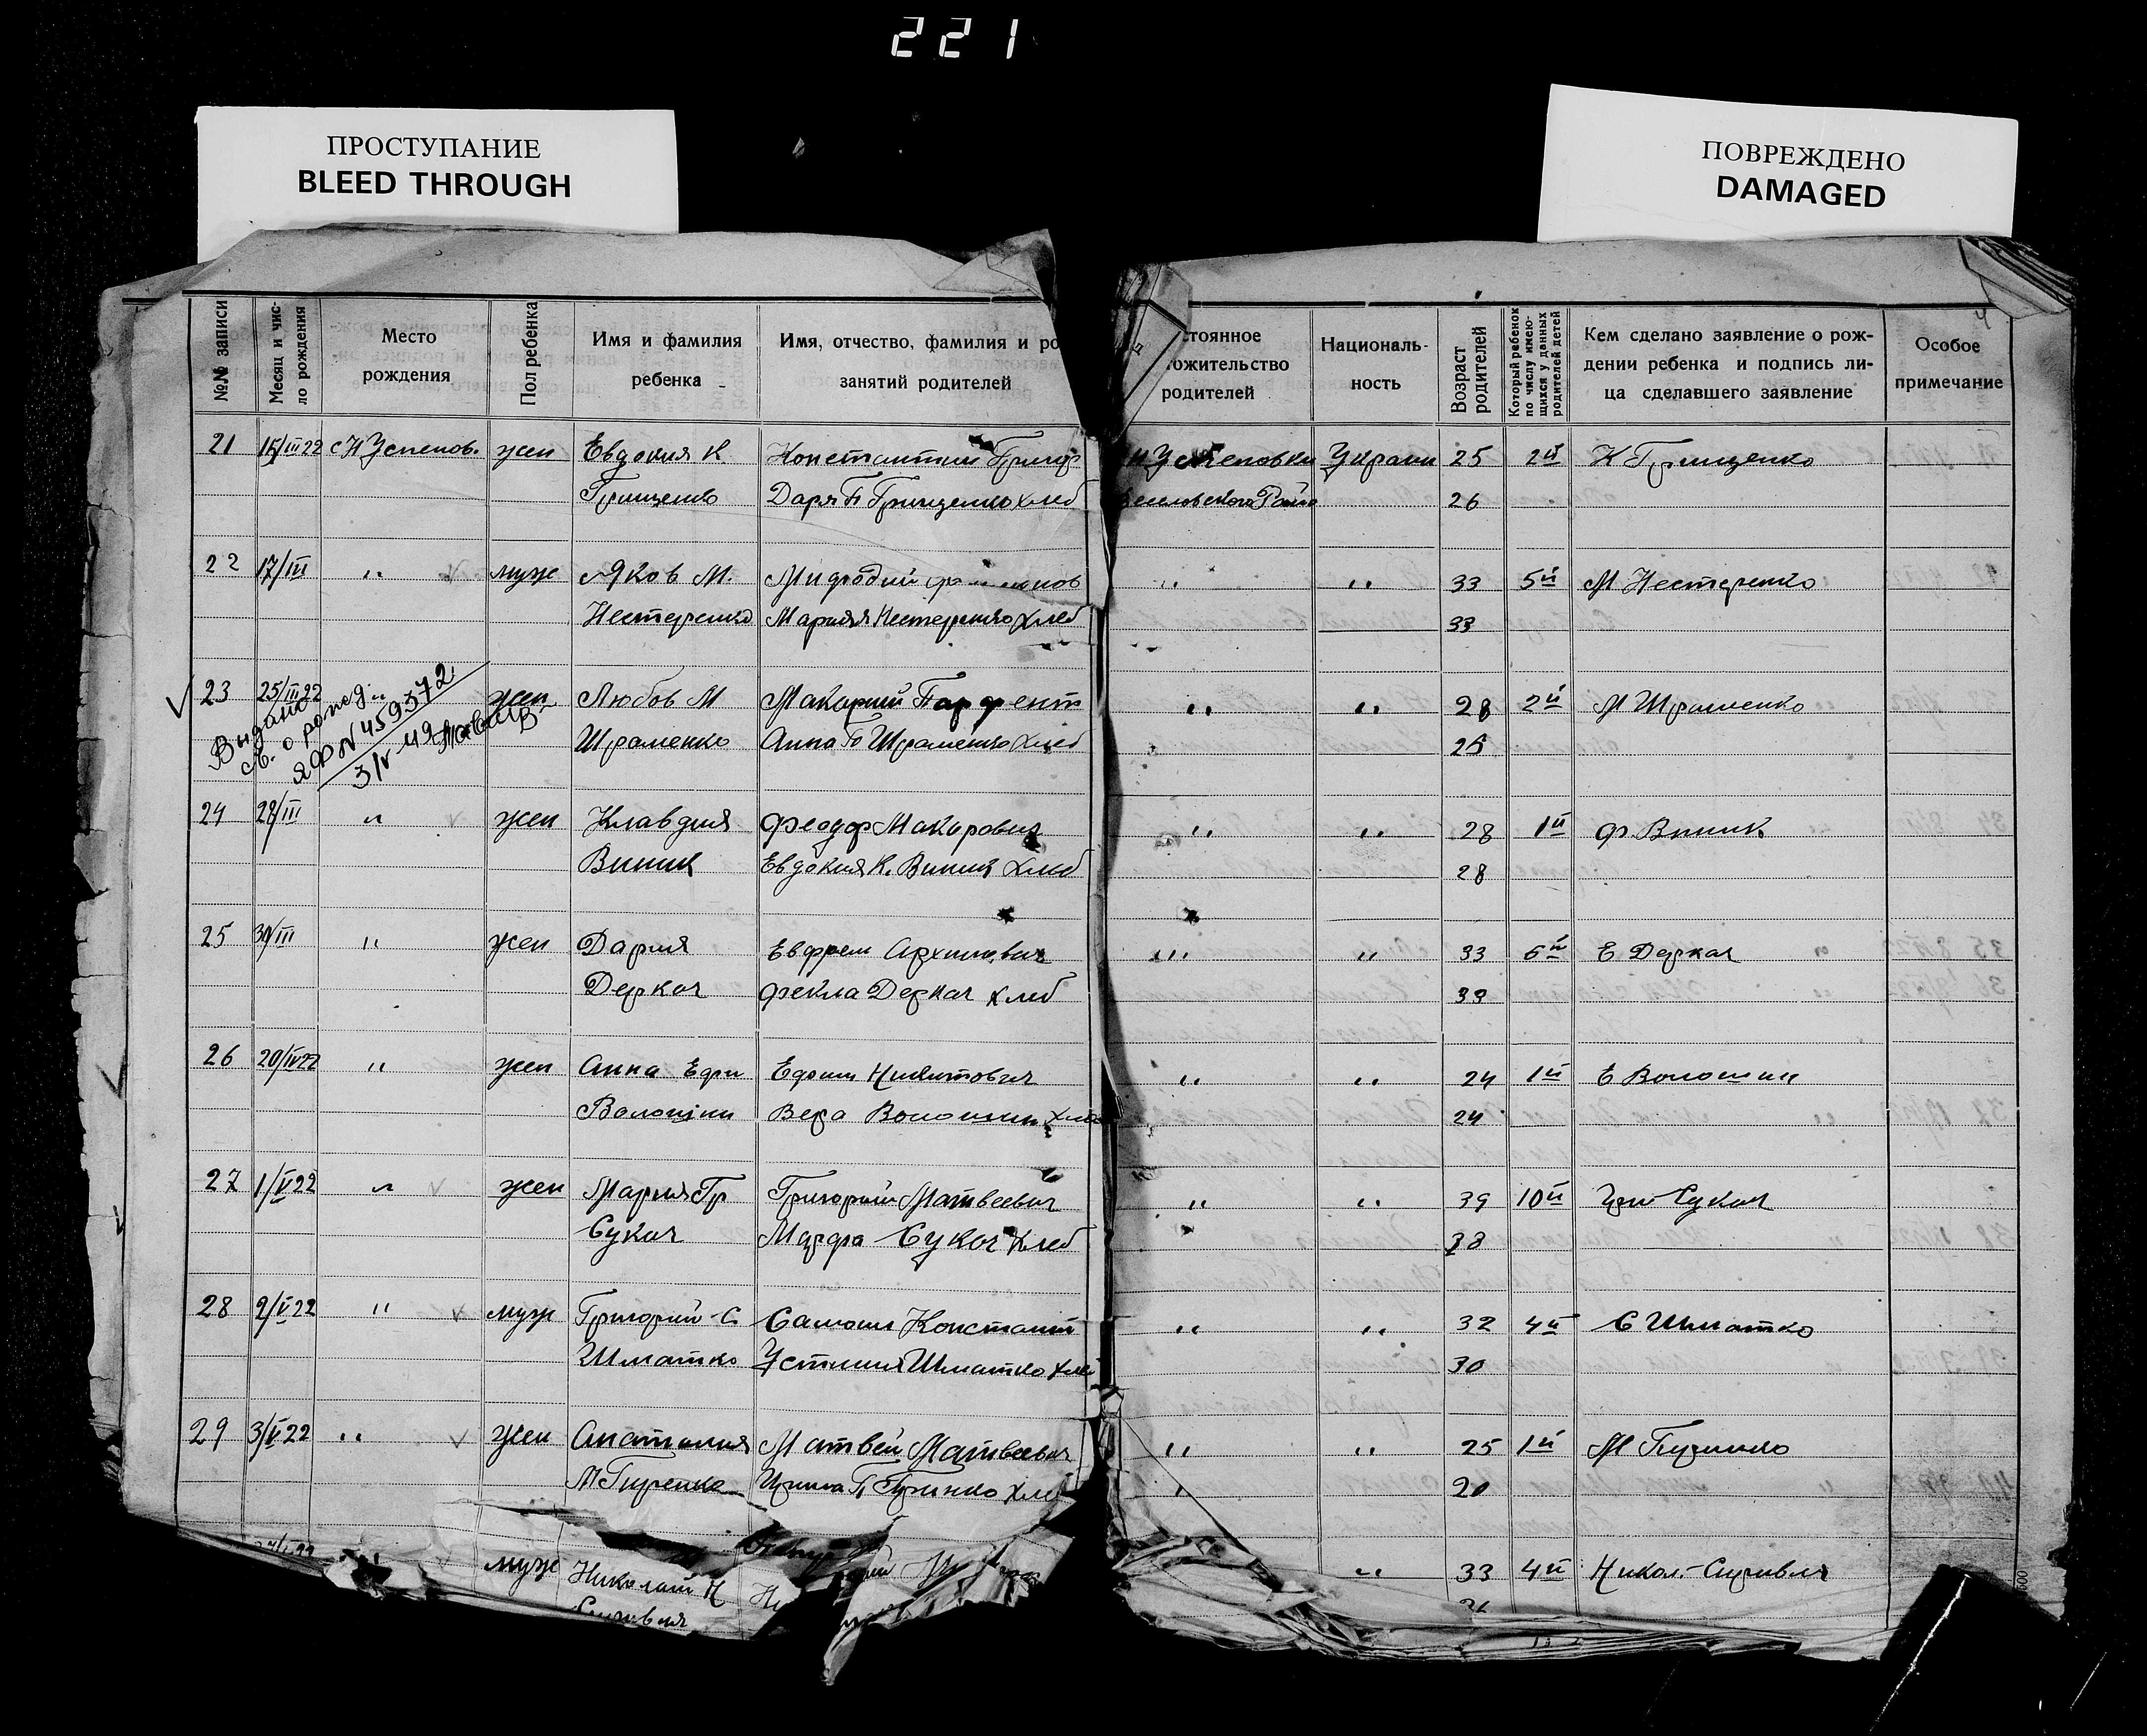 221
ПРОСТУПАНИЕ
BLEED THROUGH
ПОВРЕЖДЕНО
DAMAGED
№№ записи
Месяц и чис-
ло рождения
Место
рождения
Пол ребенка
Имя и фамилия
ребенка
Имя, отчество, фамилия и ро
занятий родителей
стоянное
ожительство
родителей
Националь-
ность
Возраст
родителей
Который ребенок
по числу имею-
щихся у данных
родителей детей
Кем сделано заявление о рож-
дении ребенка и подпись ли-
ца сделавшего заявление
Особое
примечание
4
21 15/III 22 с Н Успенов. жен Евдокия К. Константин Григор Н Успеновки Украин 25 2й К Грищенко
Грищенко Дария П Грищенко хлеб Веселовского Райо 26
22 17/III " муж Яков М. Мифодий " " 33 5й М Нестеренко
Нестеренко Мария Нестеренко хлеб 33
23 25/III 22 " жен Любов М Макарий Парфент " " 28 2й М Шраменко
Выдано
св. о рожд.
ЯФ N 459372
3/V-49
Шраменко Анна П Шраменко хлеб 25
24 28/III " жен Клавдия Феодор Макарович " " 28 1й Ф. Виник
Виник Евдокия К. Виник хлеб 28
25 30/III " жен Дария Евфрем Архипович " " 33 6й Е Деркач
Деркач Фекла Деркач хлеб 33
26 20/IV 22 " жен Анна Ефи Ефим Никитович " " 24 1й Е Волошин
Волошин Вера Волошин хлеб 24
27 1/V 22 " жен Мария Гр Григорий Матвеевич " " 39 10й Сукач
Сукач Марфа Сукач хлеб 38
28 2/V 22 " муж Григорий С Самоил Констант " " 32 4й С Шматко
Шматко Устиния Шматко хлеб 30
29 3/V 22 " жен Анатолия Матвей Матвеевич " " 25 1й М
М 20
муж Николай Н " 33 4й Никол.